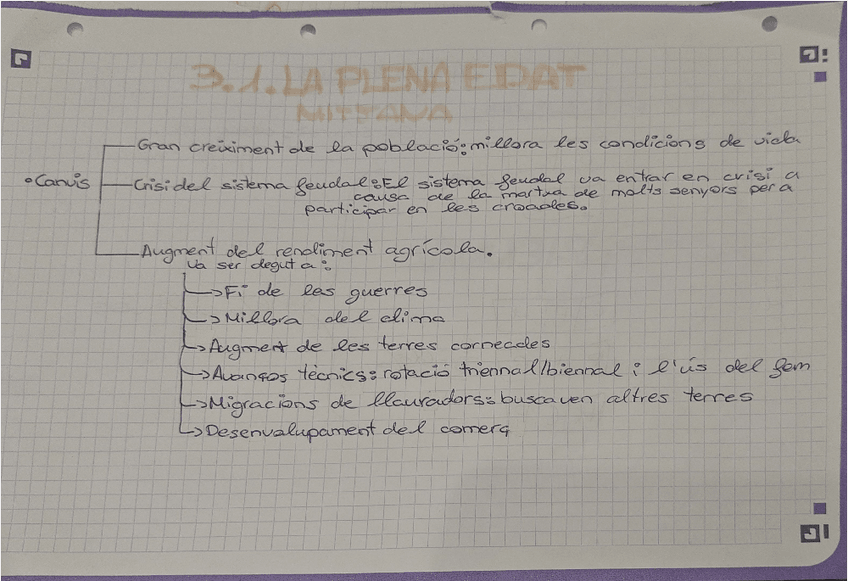 3.1. LA PLENA EDAT
MITJANA
Gran creiximent de la població: millora les condicions de vida
• Canvis
Crisi del sistema feudal: El sistema feudal va entrar en crisi a
causa de la martxa de molts senyors per a
participar en les croades.
Augment del rendiment agrícola.
Va ser degut a:
→ Fi de las guerres
→ Millora del clima
→ Augment de les terres correades
→ Avanços tècnics: rotació triennal/biennal i l'ús del fem
→ Migracions de llauradors: buscaven altres terres
→ Desenvalupament del comerç